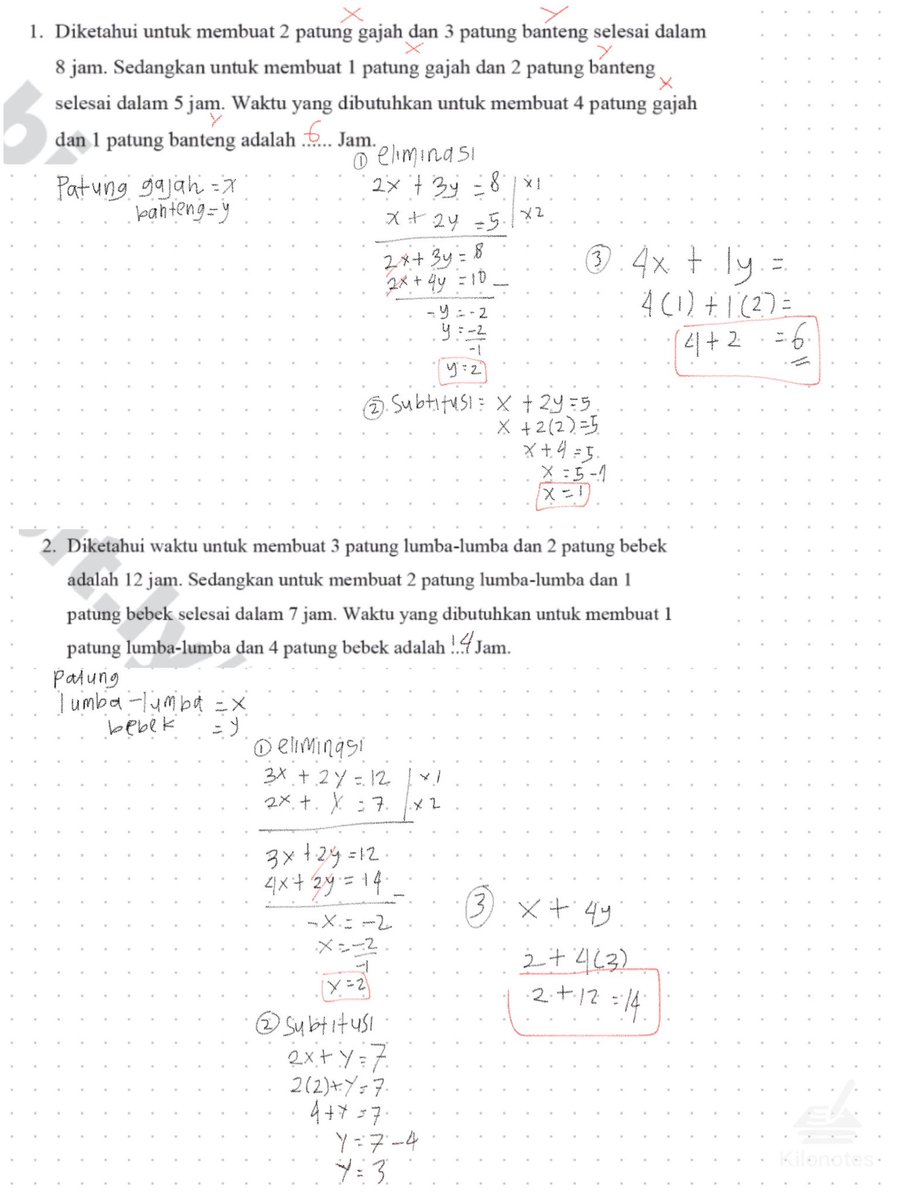 x y
1. Diketahui untuk membuat 2 patung gajah dan 3 patung banteng selesai dalam
x y
8 jam. Sedangkan untuk membuat 1 patung gajah dan 2 patung banteng
x
selesai dalam 5 jam. Waktu yang dibutuhkan untuk membuat 4 patung gajah
y
dan 1 patung banteng adalah ...6... Jam.
Patung gajah = x
banteng = y
① eliminasi
2x + 3y = 8 | x1
x + 2y = 5 | x2
2x + 3y = 8
2x + 4y = 10 –
-y = -2
y = -2
-1
y = 2
② Subtitusi = x + 2y = 5
x + 2(2) = 5
x + 4 = 5
x = 5 - 4
x = 1
③ 4x + 1y =
4(1) + 1(2) =
4 + 2 = 6
2. Diketahui waktu untuk membuat 3 patung lumba-lumba dan 2 patung bebek
adalah 12 jam. Sedangkan untuk membuat 2 patung lumba-lumba dan 1
patung bebek selesai dalam 7 jam. Waktu yang dibutuhkan untuk membuat 1
patung lumba-lumba dan 4 patung bebek adalah 14 Jam.
Patung
lumba-lumba = x
bebek = y
① eliminasi
3x + 2y = 12 | x1
2x + y = 7 | x2
3x + 2y = 12
4x + 2y = 14 –
-x = -2
x = -2
-1
x = 2
② Subtitusi
2x + y = 7
2(2) + y = 7
4 + y = 7
y = 7 - 4
y = 3
③ x + 4y
2 + 4(3)
2 + 12 = 14
Kilonotes